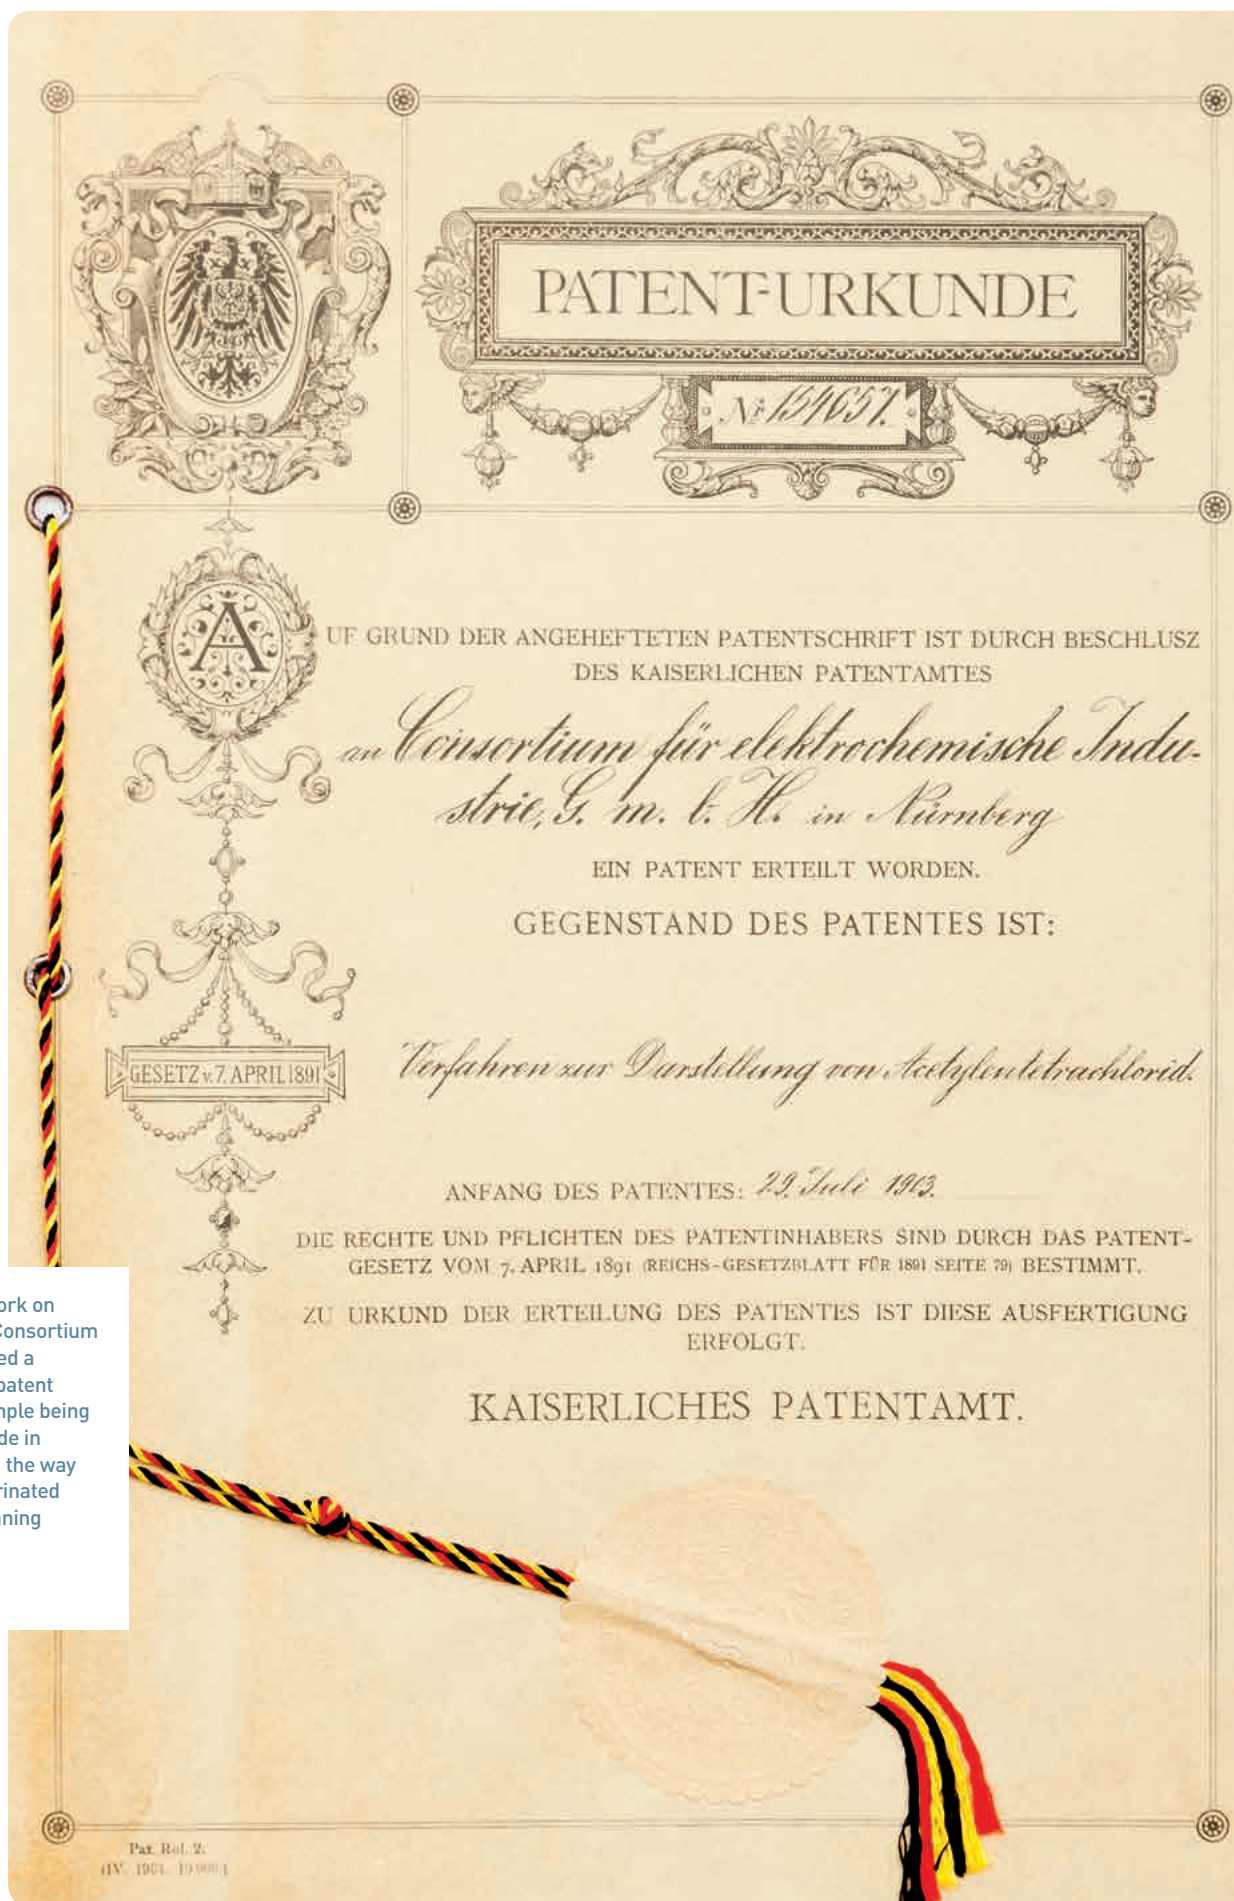 PATENT-URKUNDE
Nr. 154657.
AUF GRUND DER ANGEHEFTETEN PATENTSCHRIFT IST DURCH BESCHLUSZ
DES KAISERLICHEN PATENTAMTES
an Consortium für elektrochemische Indu-
strie, G. m. b. H. in Nürnberg
EIN PATENT ERTEILT WORDEN.
GEGENSTAND DES PATENTES IST:
GESETZ v. 7. APRIL 1891
Verfahren zur Darstellung von Acetylentetrachlorid.
ANFANG DES PATENTES: 29. Juli 1903.
DIE RECHTE UND PFLICHTEN DES PATENTINHABERS SIND DURCH DAS PATENT-
GESETZ VOM 7. APRIL 1891 (REICHS-GESETZBLATT FÜR 1891 SEITE 79) BESTIMMT.
ZU URKUND DER ERTEILUNG DES PATENTES IST DIESE AUSFERTIGUNG
ERFOLGT.
KAISERLICHES PATENTAMT.
ork on
Consortium
ed a
patent
mple being
de in
the way
rinated
ning
Pat. Rol. 2.